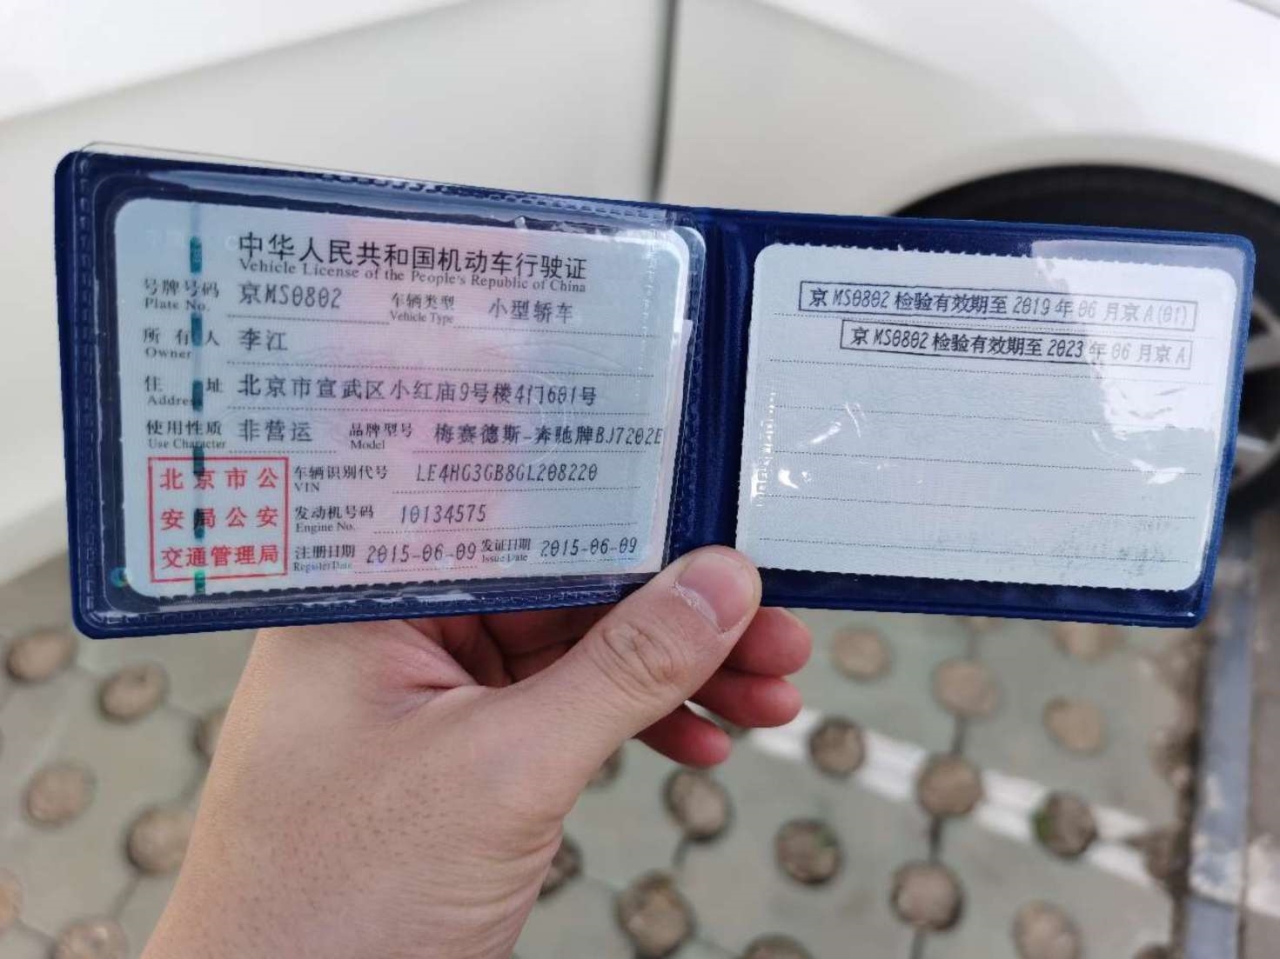 中华人民共和国机动车行驶证
Vehicle License of the People's Republic of China
号牌号码 京MS0802 车辆类型 小型轿车
Plate No. Vehicle Type
所有人 李江
Owner
住址 北京市宣武区小红庙9号楼4门601号
Address
使用性质 非营运 品牌型号 梅赛德斯-奔驰牌BJ7202E
Use Character Model
北京市公
安局公安
交通管理局
车辆识别代号 LE4HG3GB8GL208220
VIN
发动机号码 10134575
Engine No.
注册日期 2015-06-09 发证日期 2015-06-09
Register Date Issue Date
京MS0802检验有效期至2019年06月京A(01)
京MS0802检验有效期至2023年06月京A